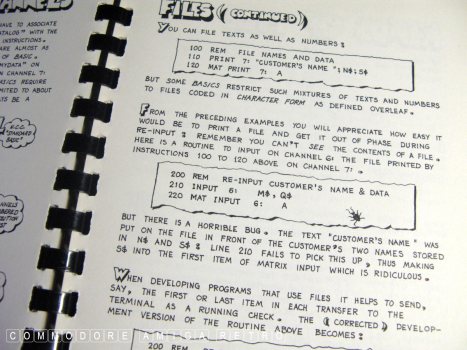 HANNELS
HAVE TO ASSOCIATE
CATALOG" WITH THE
INSTRUCTIONS.
ARE ALMOST AS
OF BASIC.
"MYDATA" ON
ON CHANNEL 7:
BASICS REQUIRE
LIMITED TO ABOUT
ALWAYS BE A
E.C.C.
"STANDARD
BASIC"
CHANNELS
FILES (CONTINUED)
YOU CAN FILE TEXTS AS WELL AS NUMBERS:
100 REM FILE NAMES AND DATA
110 PRINT 7: "CUSTOMER'S NAME"; N$; S$
120 MAT PRINT 7: A
BUT SOME BASICS RESTRICT SUCH MIXTURES OF TEXTS AND NUMBERS
TO FILES CODED IN CHARACTER FORM AS DEFINED OVERLEAF.
FROM THE PRECEDING EXAMPLES YOU WILL APPRECIATE HOW EASY IT
WOULD BE TO PRINT A FILE AND GET IT OUT OF PHASE DURING
RE-INPUT: REMEMBER YOU CAN'T SEE THE CONTENTS OF A FILE.
HERE IS A ROUTINE TO INPUT ON CHANNEL 6: THE FILE PRINTED BY
INSTRUCTIONS 100 TO 120 ABOVE ON CHANNEL 7:.
200 REM RE-INPUT CUSTOMER'S NAME & DATA
210 INPUT 6: M$, Q$
220 MAT INPUT 6: A
BUT THERE IS A HORRIBLE BUG. THE TEXT "CUSTOMER'S NAME" WAS
PUT ON THE FILE IN FRONT OF THE CUSTOMER'S TWO NAMES STORED
IN N$ AND S$: LINE 210 FAILS TO PICK THIS UP, THUS MAKING
S$ INTO THE FIRST ITEM OF MATRIX INPUT WHICH IS RIDICULOUS.
WHEN DEVELOPING PROGRAMS THAT USE FILES IT HELPS TO SEND,
SAY, THE FIRST OR LAST ITEM IN EACH TRANSFER TO THE
TERMINAL AS A RUNNING CHECK. THE (CORRECTED) DEVELOP-
MENT VERSION OF THE ROUTINE ABOVE BECOMES:
COMMODORE AMIGA RETRO